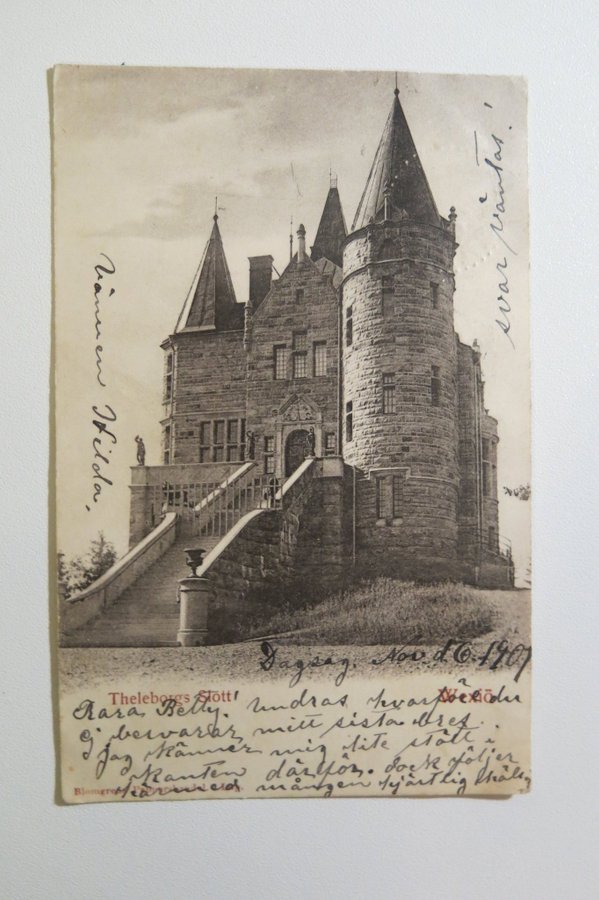 svar väntas!
Vännen Hilda.
Dagsag. Nov d. 6. 1907
Theleborgs Slott Wexiö
Kära Betty! Undras hvarför du
ej besvarar mitt sista bref.
jag känner mig lite stött i
kanten därför. dock följer
härmed mången hjärtlig hälsn
Blomgrens